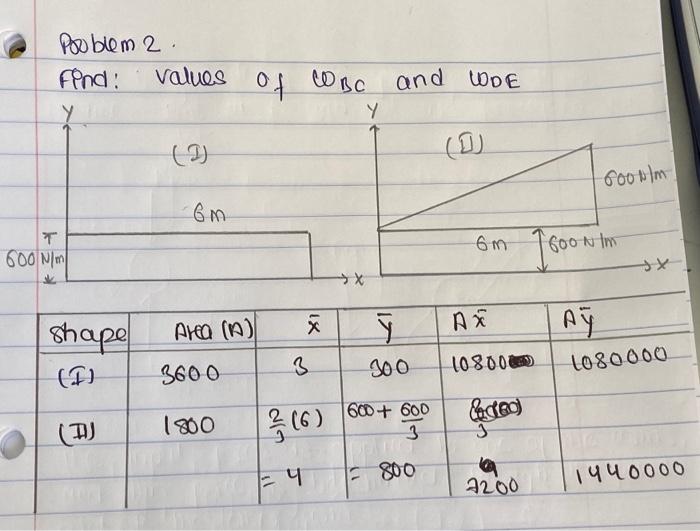 Problem 2.
Find: values of ωBC and ωDE
Y
Y
(I)
(II)
600 N/m
6m
6m
600 N/m
600 N/m
x
x
shape Area (A) x̄ ȳ Ax̄ Aȳ
(I) 3600 3 300 10800 1080000
(II) 1800 2/3 (6) 600 + 600/3
= 4 = 800 7200 1440000